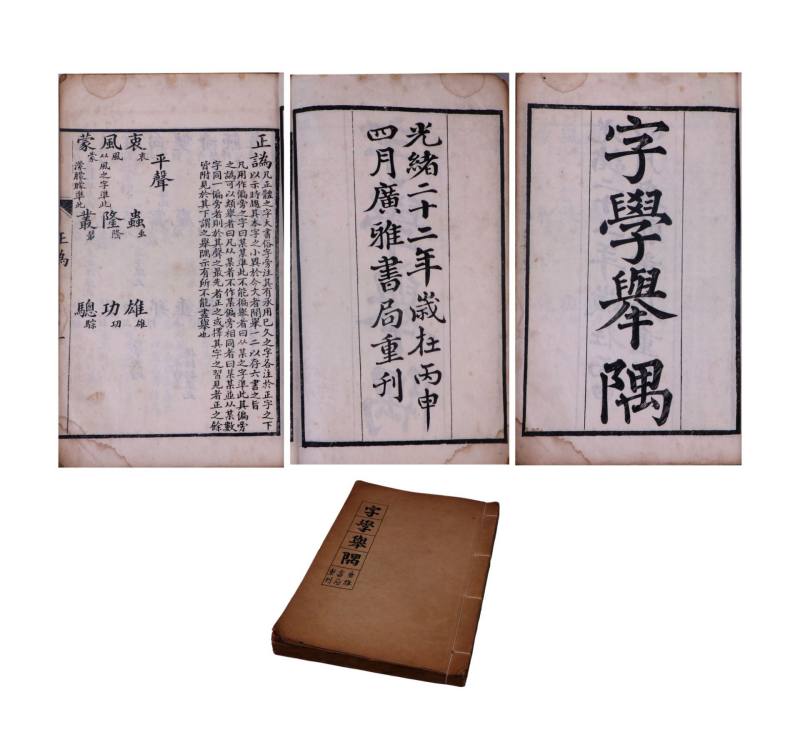 字學舉隅
光緒二十二年歲在丙申
四月廣雅書局重刊
正譌 凡正體之字大書俗字旁注其有承用已久之字各注於正字之下
以示時趨其本字之小異於今文者間舉一二以存六書之旨
凡用作偏旁之字曰某某準此不能徧舉者曰从某之字準此其偏旁
之譌可以類舉者曰凡从某者不作某偏旁相同者曰某某並从某數
字同一偏旁者則於其聲之最先者正之或擇其字之習見者正之餘
皆附見於其下謂之舉隅示有所不能盡舉也
平聲
衷 衷 蟲 虫 雄 雄
風 風 从風之字準此 隆 隆 功 功
蒙 蒙 濛朦矇準此 叢 驄 騘
正譌
字學舉隅